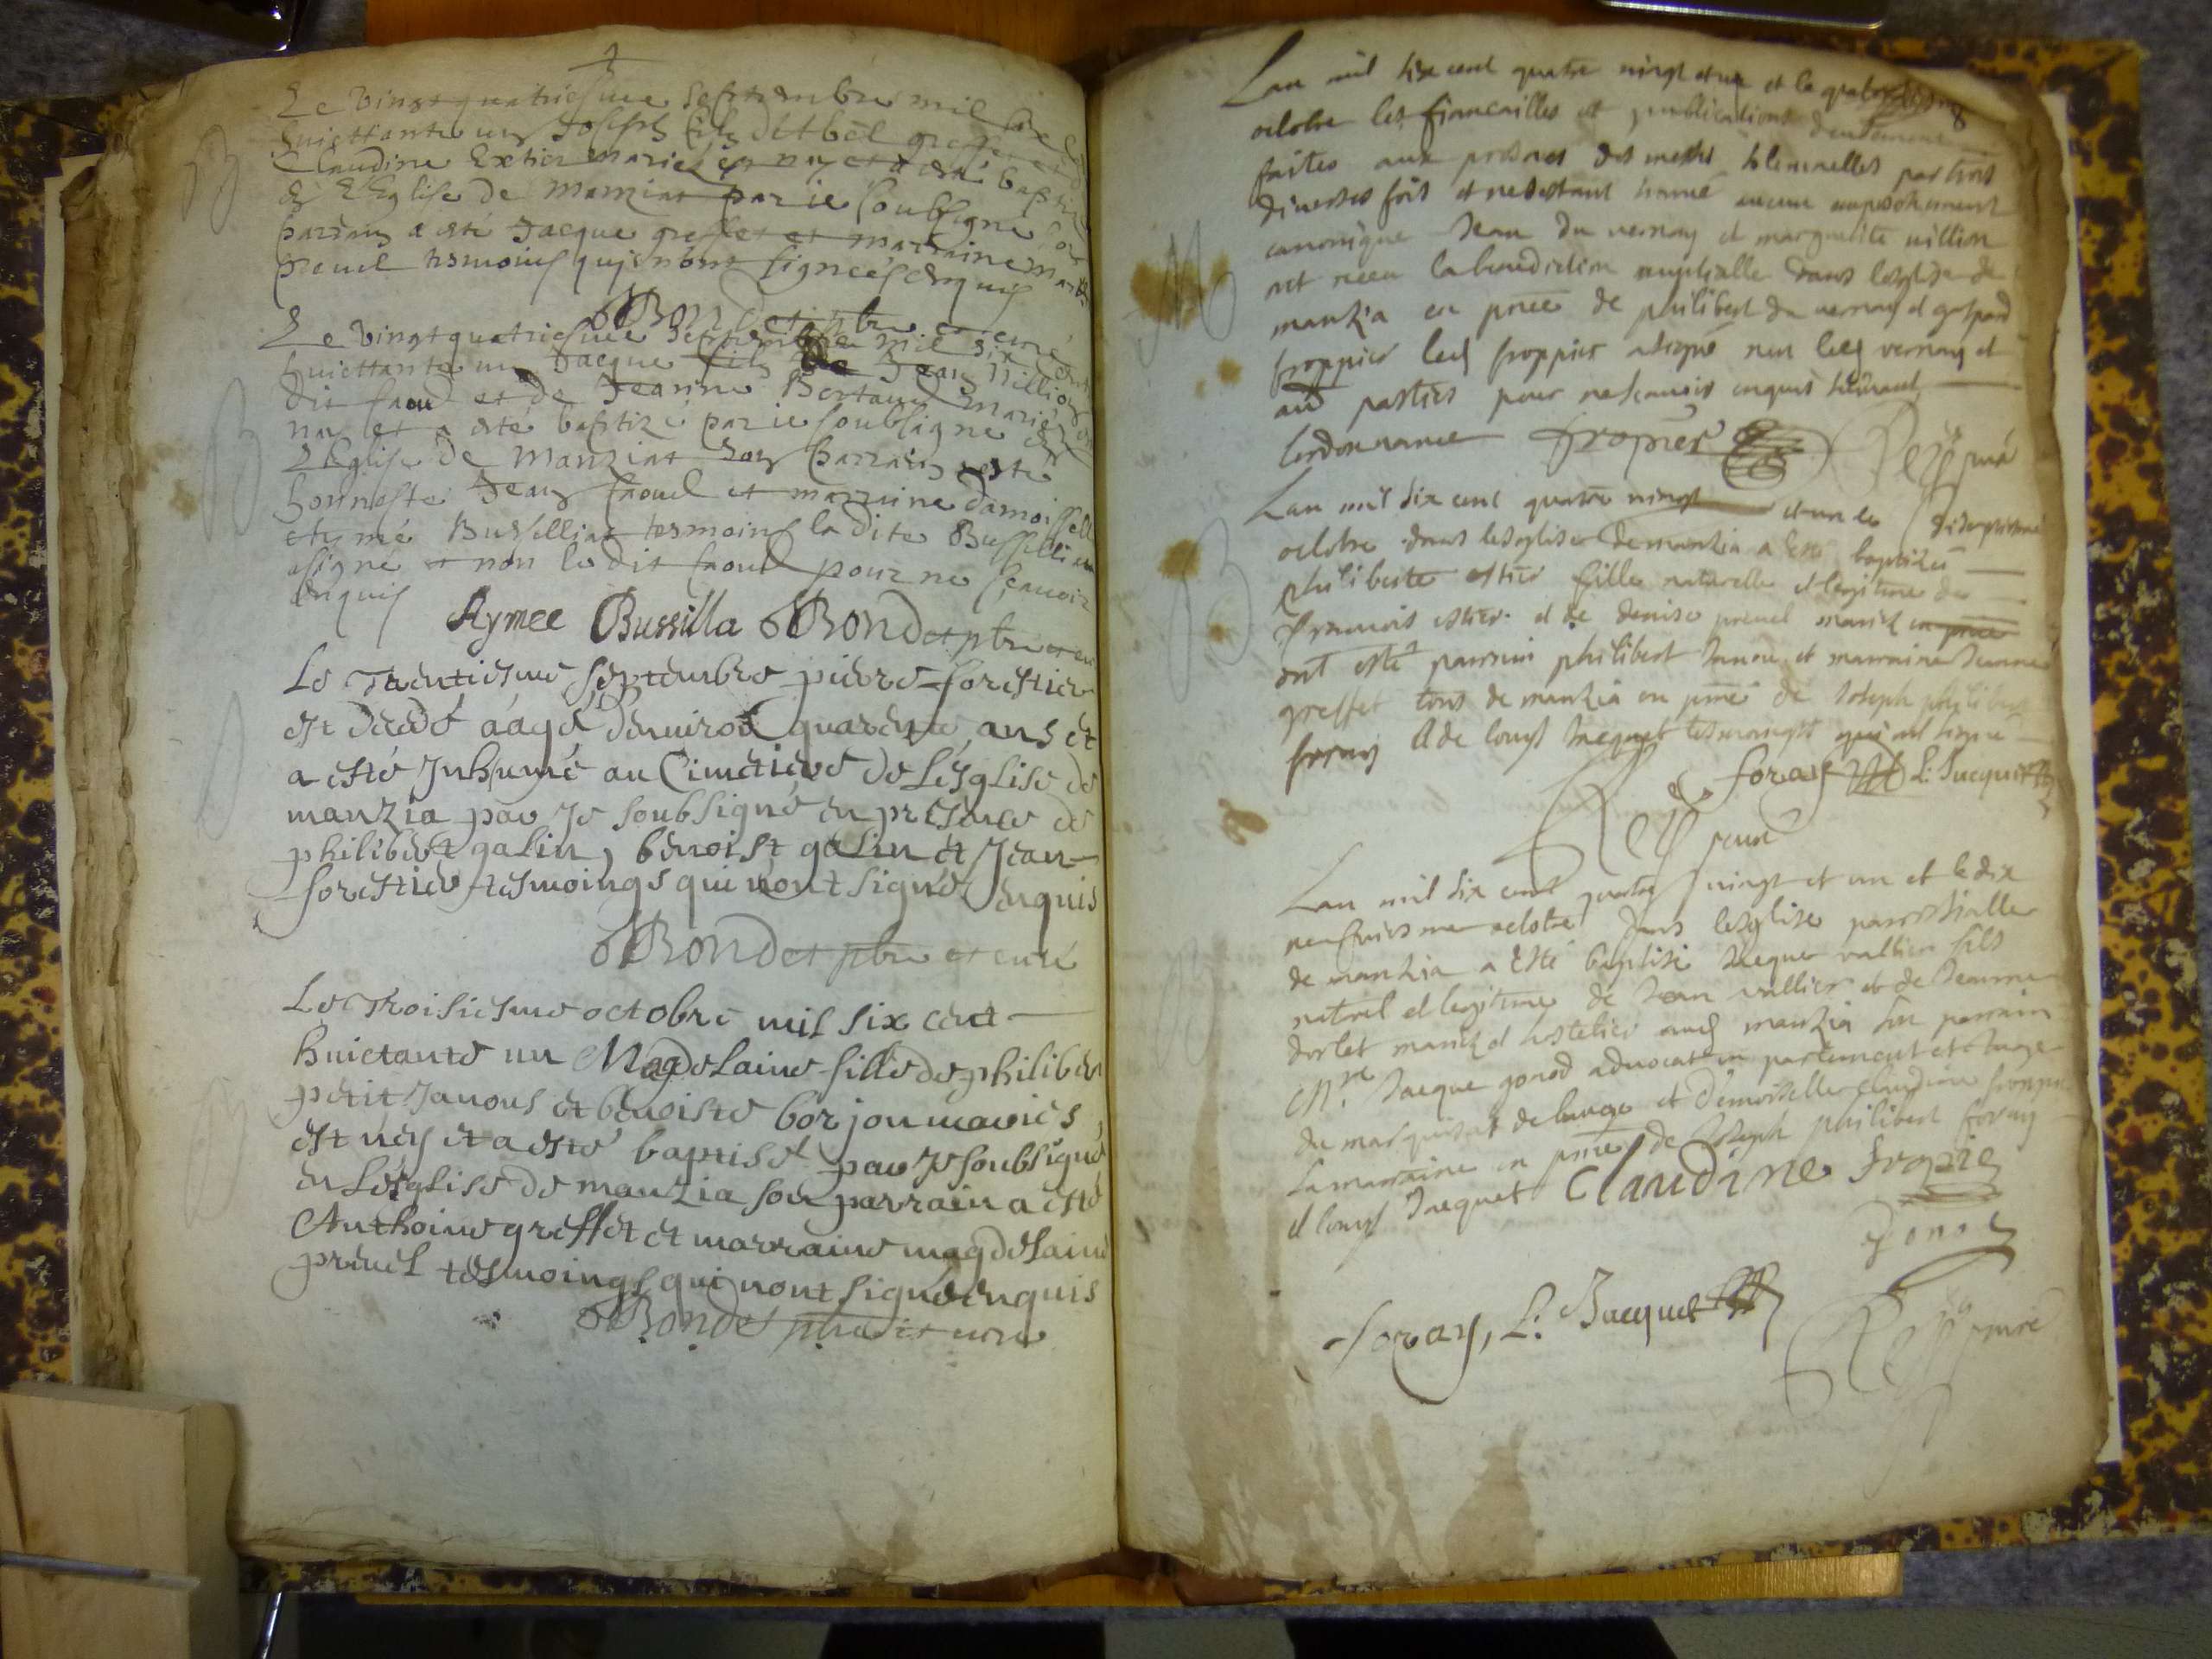 Le vingt quatriesme septembre mil six
huicttante un Joseph fils
Claudine Extier mariés est nay et a esté baptizé
En L'Eglise de Manziat par ie soubsigné son
parrain a esté Jacque greffet et marraine
preuel tesmoins qui n'ont signeés enquis
Bondet ptre et curé
Le vingt quatriesme septembre mil six cent
huicttante un Jacque fils de Jean Nillion
dit faoud et de Jeanne Bertaud mariés
nay et a esté baptizé par ie soubsigné en
L'Eglise de Manziat son parrain a esté
honneste Jean faoud et marraine damoisselle
Bussilliat tesmoins la dite Bussilliat
asigné et non le dit faoud pour ne sçauoir
enquis
Aymee Bussilla Bondet ptre et cu
Le Trentiesme septembre pierre forestier
est decedé aagé d'enuiron quarente ans et
a esté Inhumé au Cimetiere de L'esglise de
manzia par Je soubsigné en presence de
philibert galin, benoist galin et Jean
forestier tesmoings qui n'ont signé enquis
Bondet ptre et curé
Le Troisiesme octobre mil six cent
huictante un Magdelaine fille de philiber
petit Janous et benoiste borjon mariés,
est néy et a esté baptisé par Je soubsigné
en L'esglise de manzia son parrain a esté
Anthoine greffet et marraine magdelaine
preuel tesmoings qui n'ont signé enquis
Bondet ptre et curé
8
Lan mil six cent quatre vingt et un et le
octobre les fiancailles et publications
faites aux prosnes des messes solemnelles par trois
diuerses fois et ne sestant trouué aucun empeschement
canonique Jean du vernay et marguerite nillion
ont receu la benediction nuptialle dans lesglise de
manzia en pnce de philibert du vernay et gaspard
froppier led froppier a signé non led vernay et
parties pour ne scauoir enquis suiuant
lordonnance fropier
curé
Lan mil six cent quatre vingt et un le
octobre dans lesglise de manzia a esté baptizeé
philiberte estier fille naturelle et legitime de
francois estier et de denise preuel mariez
ont esté parrain philibert Janou et marraine Jeanne
greffet tous de manzia en pnce de Joseph philibert
foray et de louys Jacquet tesmoings qui ont signé
foray L. Jacquet
curé
Lan mil six cent quatre vingt et un et le dix
neufuiesme octobre dans lesglise parrochialle
de manzia a esté baptisé Jacque vallier fils
naturel et legitime de Jean vallier et de Jeanne
dorlet mariez et hostelier aud manzia son parrain
Mre. Jacque gonod aduocat en parlement et Juge
du marquisat de baugé et demoiselle claudine froppier
la marraine en pnce de Joseph philibert foray
et louys Jacquet Claudine fropie
Gonod
foray, L. Jacquet
curé